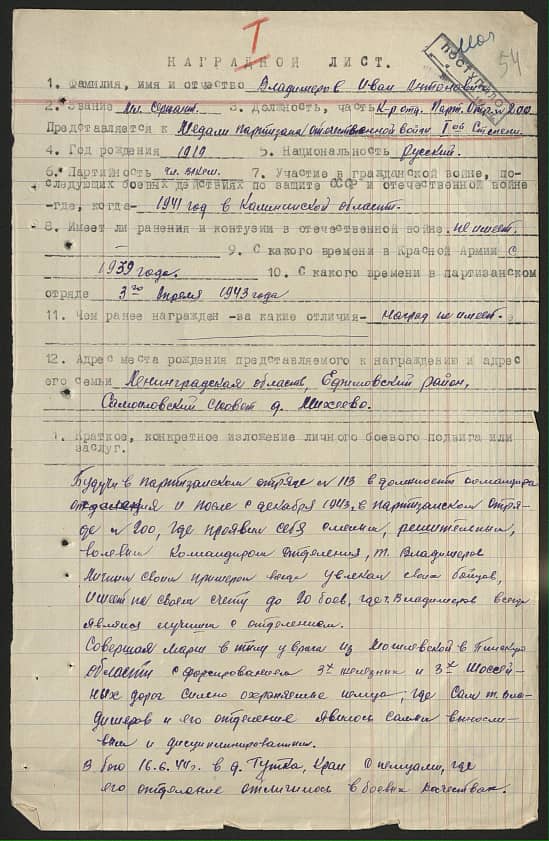 Т
54
ПОСТУПИЛО
НАГРАДНОЙ ЛИСТ.
1. Фамилия, имя и отчество Владимеров Иван
2. Звание Мл. Сержант. 3. Должность, часть К-р отд. Парт. Отряд 200
Представляется к Медали партизана отечественной войны I ой Степени.
4. Год рождения 1919 5. Национальность Русский.
6. Партийность чл. ВЛКСМ. 7. Участие в гражданской войне, по-
следующих боевых действиях по защите СССР и отечественной войне
-где, когда- 1941 год в Калининской области.
8. Имеет ли ранения и контузии в отечественной войне. не имеет.
9. С какого времени в Красной Армии С
1939 года. 10. С какого времени в партизанском
отряде 3го Апреля 1943 года
11. Чем ранее награжден -за какие отличия- наград не имеет.
12. Адрес места рождения представляемого к награждению и адрес
его семьи Ленинградская область, Ефимовский район,
Сельсовет д. Михеево.
1. Краткое, конкретное изложение личного боевого подвига или
заслуг.
Будучи в партизанском отряде № 113 в должности командира
отделения и после с декабря 1943, в партизанском отря-
де № 200, где проявил себя смелым, решительным,
волевым Командиром отделения, т. Владимеров
Личным своим примером всегда увлекал своих бойцов,
Имеет на своем счету до 20 боев, где т. Владимеров всегда
являлся лучшим с отделением.
Совершая марш в тылу врага из Могилевской в Пинскую
области с форсированием 3х железных и 3х Шоссей-
ных дорог сильно охраняемые немца, где Сам т. Вла-
димеров и его отделение явилось самым вынослив-
ым и дисциплинированным.
В бою 16.6.44г. в д. Гутка, с немцами, где
его отделение отличилось в боевых качествах.